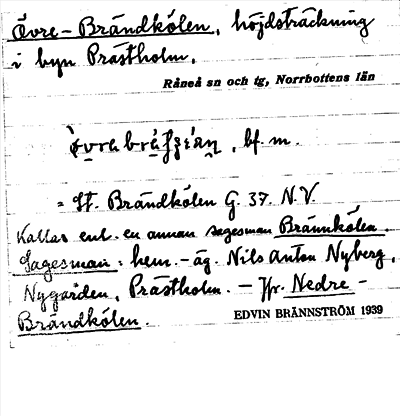 Övre-Brändkölen, höjdsträckning
i byn Prästholm.
Råneå sn och tg, Norrbottens län
, bf. m.
= St. Brändkölen G. 37. N.V.
Kallas enl. en annan sagesman Brännkölen.
Sagesman: hem.-äg. Nils Anton Nyberg,
Nygården, Prästholm. — Jfr. Nedre-
Brändkölen.
EDVIN BRÄNNSTRÖM 1939